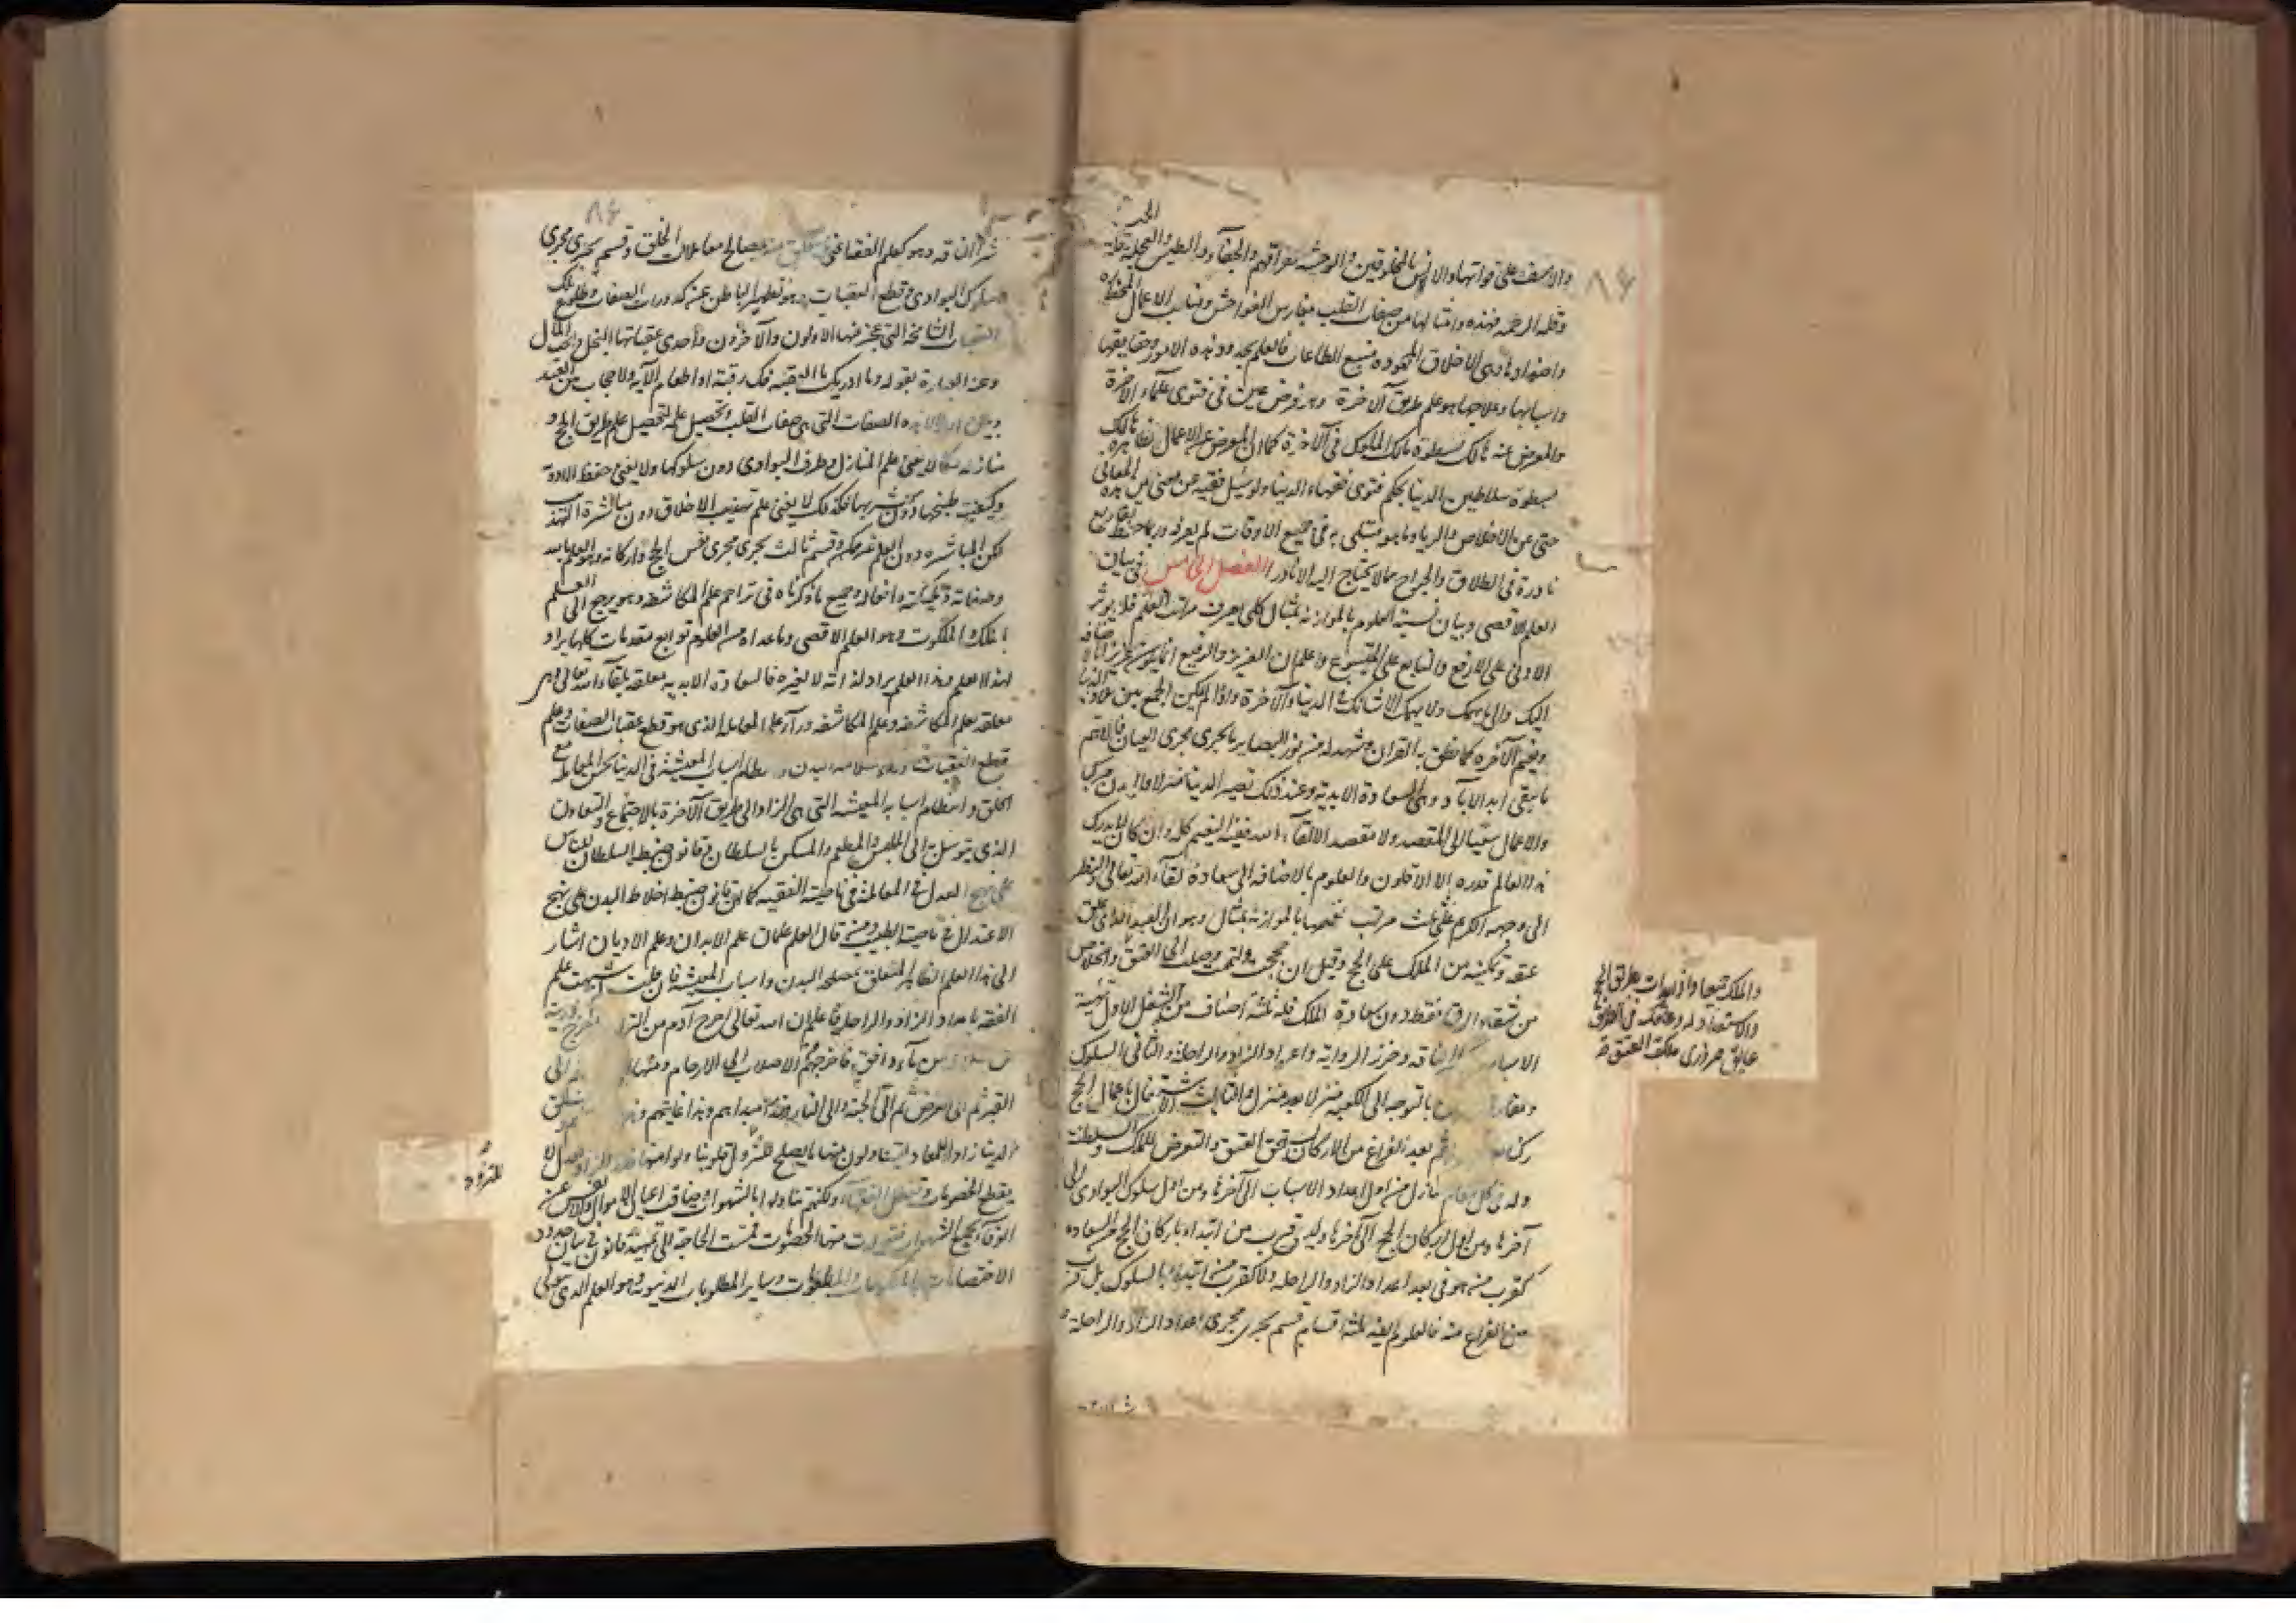 والاسف على فواتها والانس بالمخلوقين والوحشة بفراقهم والجفاء والطيش والعجلة وقلة
الحيا
وقلة الرحمة فهذه وامثالها من صفات القلب مغارس الفواحش ومنابت الاعمال المحظورة
واضدادها وهى الاخلاق المحمودة منبع الطاعات فالعلم بحدود هذه الامور وحقايقها
واسبابها وعلاجها هو علم طريق الآخرة وهو فرض عين فى فتوى علماء الآخرة
والمعرض عنه هالك بسطوة مالك الملوك فى الآخرة كما ان المعرض عن الاعمال الظاهرة هالك
بسطوة سلاطين الدنيا بحكم فتوى فقهاء الدنيا ولو سئل فقيه عن معنى من هذه المعانى
حتى عن الاخلاص والريا وما هو مبتلى به فى جميع الاوقات لم يعرفه وربما حفظ تفاريع
نادرة فى الطلاق والجراح مما لا يحتاج اليه الا نادرا الفصل الخامس فى بيان
العلم الاقصى وبيان نسبة العلوم بالموازنة بمثال كلى يعرف مراتب العلم فلا يوثر
الادنى على الارفع والتابع على المتبوع واعلم ان العزيز والرفيع انما يكون عزيزا بالاضافة
اليك والى مهمك ولا يهمك الا شانك فى الدنيا والآخرة واذا لم يكن الجمع بين ملاذ الدنيا
ونعيم الآخرة كما نطق به القران وشهد له من نور البصاير ما يجرى مجرى العيان فالاهم
ما يبقى ابد الاباد وهى السعادة الابدية وعند ذلك تصير الدنيا منزلا والبدن مركبا
والاعمال سعيا الى المقصد ولا مقصد الا لقاء الله ففيه النعيم كله وان كان لا يدرك
هذا العالم قدره الا الاقلون والعلوم بالاضافة الى سعادة لقاء الله تعالى والنظر
الى وجهه الكريم على ثلث مراتب تفهمها بالموازنة بمثال وهو ان العبد الذى علق
عتقه وتمكينه من الملك على الحج وقيل ان حججت واتممت وصلت الى العتق والخلاص
من شقاء الرق فقط دون سعادة الملك فله ثلثة اصناف من الشغل الاول تهيئة
الاسباب الناقة وخرز الراوية واعداد الزاد والراحلة والثانى السلوك
ومفارقة بالتوجه الى الكعبة منزلا بعد منزل والثالث الاشتغال باعمال الحج
ركنا ثم بعد الفراغ من الاركان استحق العتق والتعرض للملك والسلطنة
وله فى كل مقام منازل من اول اعداد الاسباب الى آخرها ومن اول سلوك البوادى الى
آخرها ومن اول اركان الحج الى آخرها وليس قرب من ابتدا باركان الحج من السعادة
كقرب من هو فى بعد اعداد الزاد والراحلة ولا كقرب من ابتدا بالسلوك بل اقرب
من الفراغ منه فالعلوم ايضا ثلثة اقسام قسم يجرى مجرى اعداد الزاد والراحلة و
والملك جميعا وان ابتدات بطريق الحج
والاستعداد له وعاقك فى الطريق
عايق ضرورى فلك العتق
شرا الناقة وهو كعلم الفقه وما يتعلق من مصالح معاملات الخلق وقسم يجرى مجرى
سلوك البوادى وقطع العقبات وهو تطهير الباطن عن كدورات الصفات وطلوع تلك
العقبات الشامخة التى عجز عنها الاولون والآخرون واحدى عقباتها البخل وحب المال
وعنه العبارة بقوله وما ادريك ما العقبة فك رقبة او اطعام الآية ولا حجاب بين العبد
وبين الله الا هذه الصفات التى هى صفات القلب وتحصيل علمه كتحصيل علم طريق الحج و
منازله وكما لا يغنى علم المنازل وطرق البوادى دون سلوكها ولا يغنى حفظ الادوية
وكيفية طبخها دون شربها فكذلك لا يغنى علم تهذيب الاخلاق دون مباشرة التهذيب
لكن المباشرة دون العلم غير ممكن وقسم ثالث يجرى مجرى نفس الحج واركانه وهو العلم بالله
وصفاته وملئكته وافعاله وجميع ما ذكرناه فى تراجم علم المكاشفة وهو يرجع الى العلم
بالملك والملكوت وهو العلم الاقصى وما عداه من العلوم توابع ومقدمات كلها يراد
لهذا العلم وهذا العلم يراد لذاته لا لغيره فالسعادة الابدية معلقة بلقاء الله تعالى وهى
معلقة بعلم المكاشفة وعلم المكاشفة وراء علم المعاملة الذى هو قطع عقبات الصفات وعلم
قطع العقبات وراء سلامة البدن ونظام اسباب المعيشة فى الدنيا بحسن المعاملة مع
الخلق وانتظام اسباب المعيشة التى هى الزاد الى طريق الآخرة بالاجتماع والتعاون
الذى يتوصل به الى الملبس والمطعم والمسكن بالسلطان وقانون ضبط السلطان للناس
على نهج العدل فى المعاملة فى ناصية الفقيه كما ان قانون ضبط اخلاط البدن على نهج
الاعتدال فى ناصية الطبيب ومن قال العلم علمان علم الابدان وعلم الاديان اشار
الى هذا العلم الظاهر المتعلق بمصلحة البدن واسباب المعيشة فان قلت لم شبهت علم
الفقه باعداد الزاد والراحلة فاعلم ان الله تعالى اخرج آدم من التراب واخرج ذريته
من سلالة من ماء دافق فاخرجهم من الاصلاب الى الارحام ومنها الى
القبر ثم الى العرض ثم الى الجنة والى النار فهذا مبداهم وهذا غايتهم وخلق
الدنيا زادا للمعاد ليتناولون منها ما يصلح للتزود
يقطع الخصومات وتعطل الفقهاء ولكنهم تناولوها بالشهوات وضاقت اعيان الاموال
الوفاء بجميع الشهوات فتولدت منها الخصومات فمست الحاجة الى تمهيد قانون فى بيان حدود
الاختصاصات والمطلوبات وساير المطلوبات الدنيوية وهو العلم الذى يسمى
للتزود